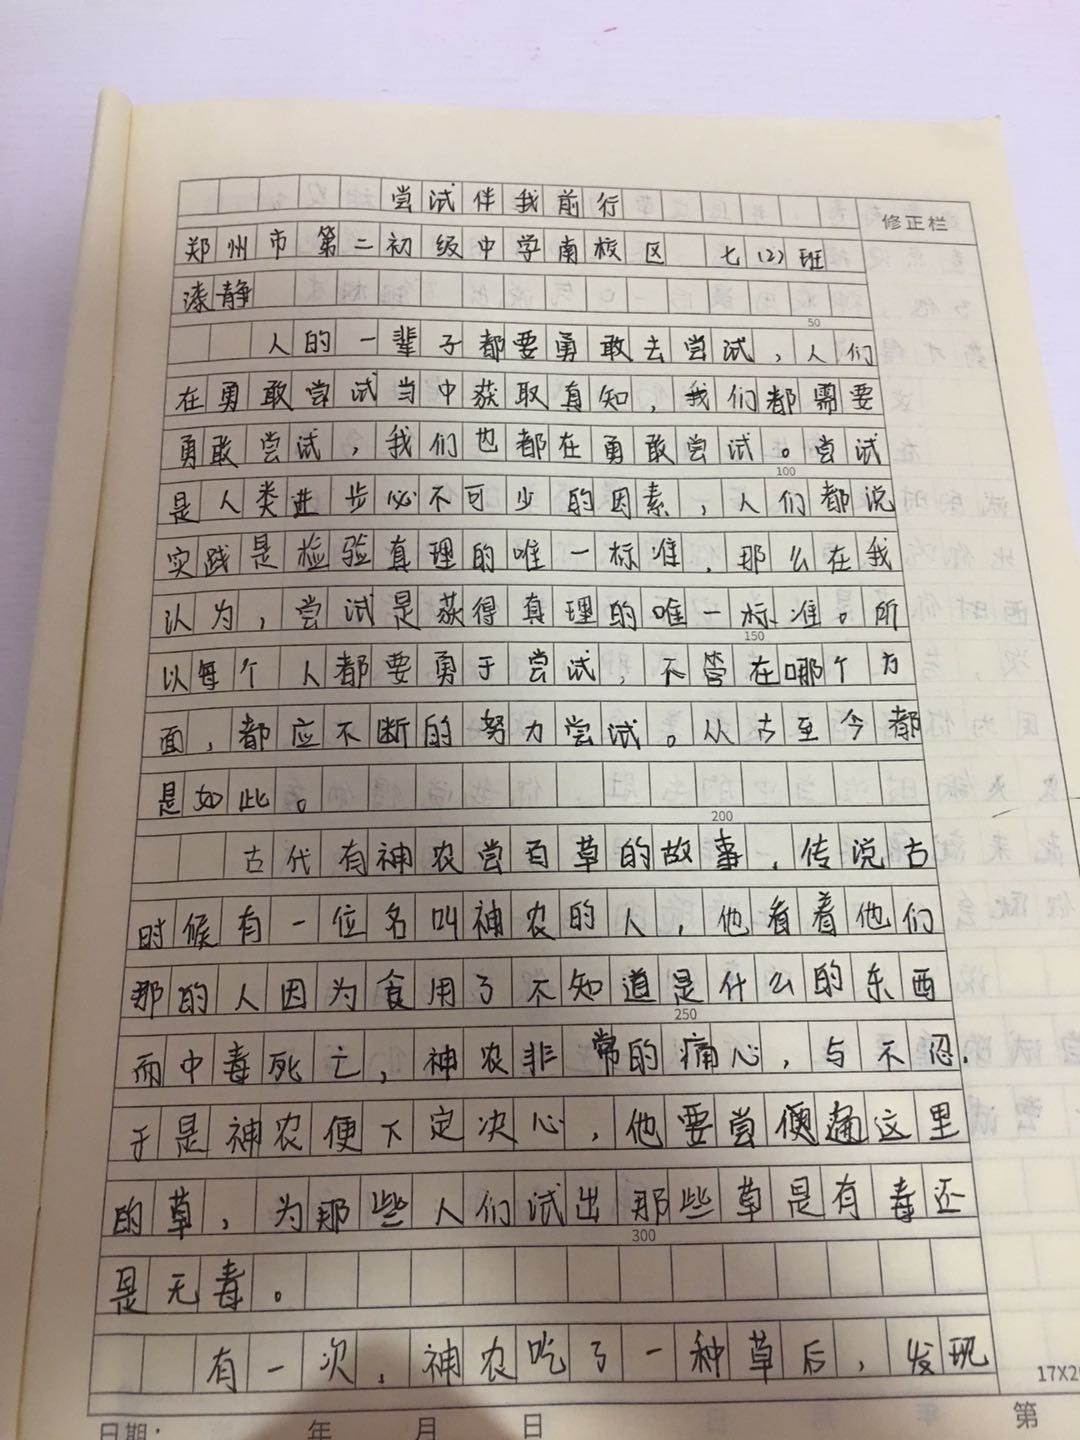 尝试伴我前行
修正栏
郑州市第二初级中学南校区 七(2)班
漆静
50
人的一辈子都要勇敢去尝试，人们
在勇敢尝试当中获取真知，我们都需要
勇敢尝试，我们也都在勇敢尝试。尝试
100
是人类进步必不可少的因素，人们都说
实践是检验真理的唯一标准，那么在我
认为，尝试是获得真理的唯一标准。所
150
以每个人都要勇于尝试，不管在哪个方
面，都应不断的努力尝试。从古至今都
是如此。
200
古代有神农尝百草的故事，传说古
时候有一位名叫神农的人，他看着他们
那的人因为食用了不知道是什么的东西
250
而中毒死亡，神农非常的痛心，与不忍.
于是神农便下定决心，他要尝便遍这里
的草，为那些人们试出那些草是有毒还
300
是无毒。
有一次，神农吃了一种草后，发现
17X2
日期： 年 月 日 第